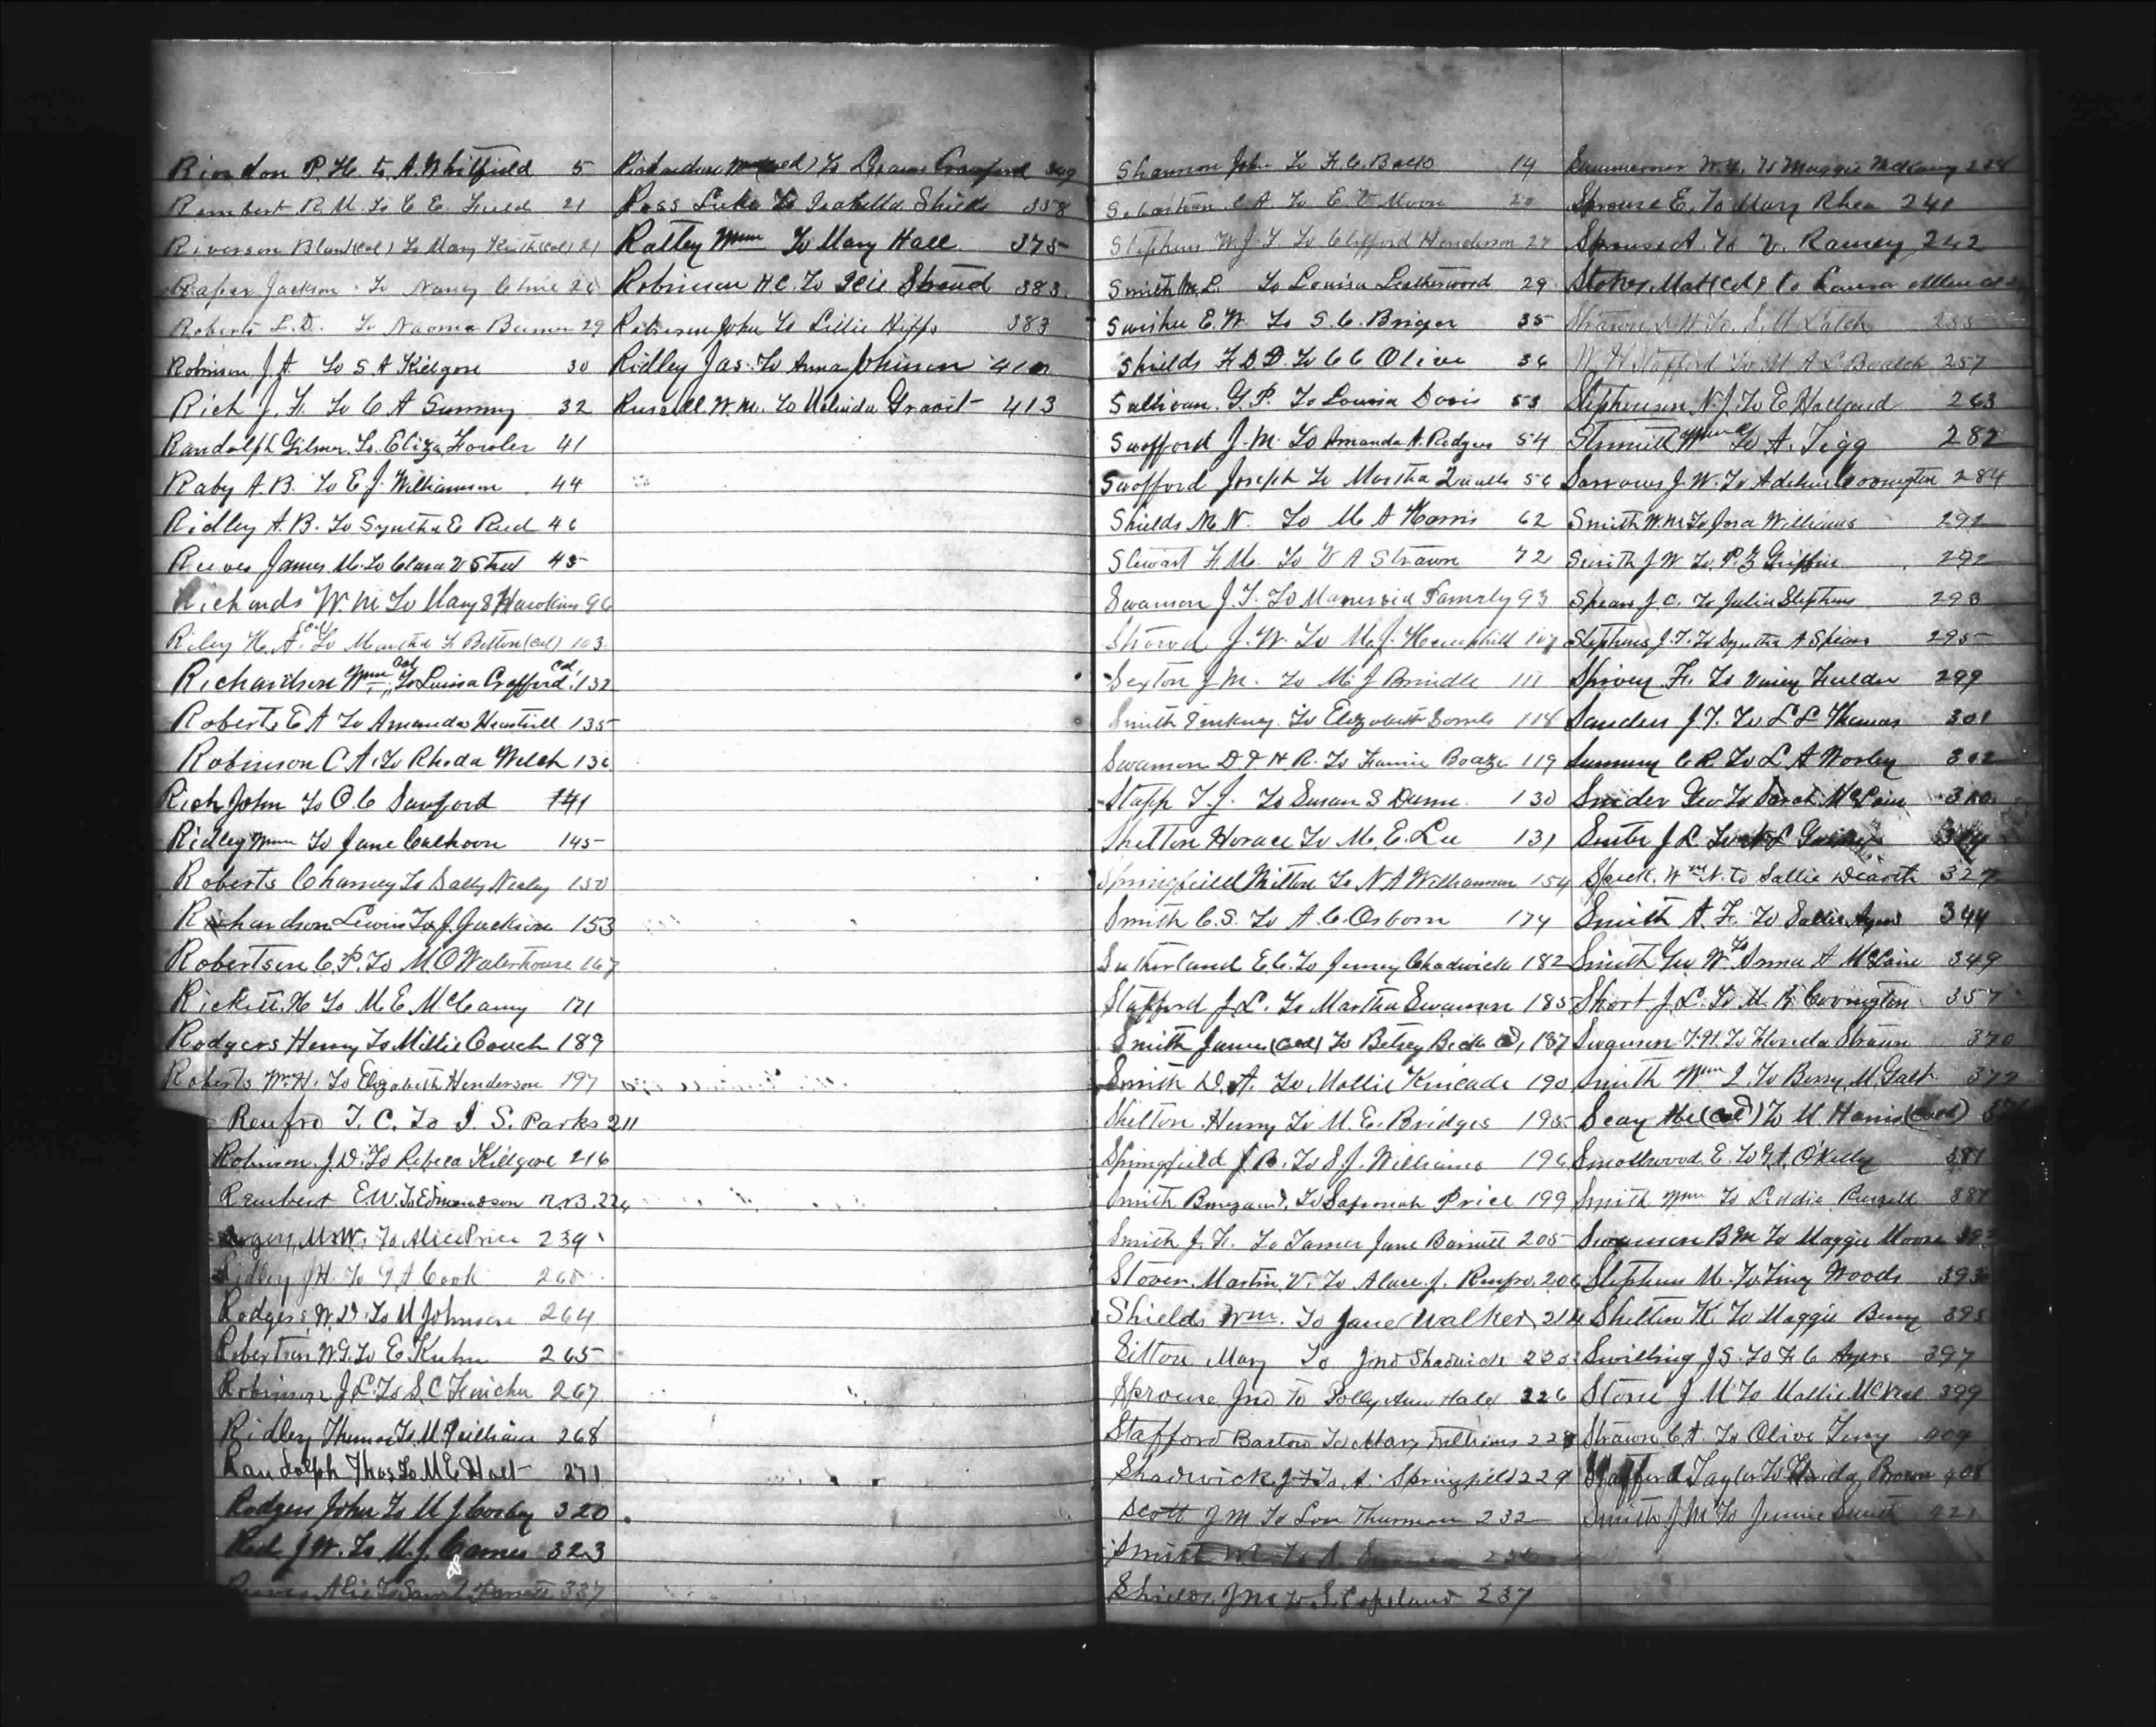 Riordon P. H. to A. Whitfield 5
Rembert R. M. To C. E. Field 21
Riverson Blan (Col) To Mary Keith (Col) 21
Jackson To Nancy Cline
Roberts L. D. To Naoma 29
Robinson J. A. To S A Kilgore 30
Rich J. F. To C A Summy 32
Randolph Gilmer To Eliza Fowler 41
Raby A. B. To E. J. Williamson 44
Ridley A. B. To Syntha E Reed 46
Reeves James M. To Clara V Steel 45
Richards W. M To Mary E Hawkins 96
Riley H. A. (Col) To Martha F Bolton (Col) 103
Richardson Wm Col To Louisa Crafford Col 132
Roberts E A To Amanda 135
Robinson C A. To Rhoda Welch 136
Rich John To O. C Sanford 141
Ridley Wm To Jane Calhoon 145
Roberts Charney To Sally Neeley 150
Richardson Lewis To J. Jackson 153
Robertson C. P. To M O Waterhouse 167
Rickett H To M. E. McCamy 171
Rodgers Henry To Millie Couch 189
Roberts Wm H. To Elizabeth Henderson 197
Renfro T. C. To I. S. Parks 211
Robinson J. D. To Rebeca Kilgore 216
Rembert E. W. To Edmondson
M. W. To Alice Price 239
Ridley J H. To Cook
Rodgers W. D. To M Johnson 264
Robertson W. G. To E Kuhn 265
Robinson J. L. To S. C 267
Ridley Thomas To M Gilliam 268
Randolph Thos To M E Holt 271
Rodgers John To M J Cooley 320
Reed J W. To M. J. Carnes 323
Alic To 337
Richardson Wm (Col) To Crawford 349
Ross Luke To Isabella Shields 358
Ratley Wm To Mary Hall 375
Robinson H C. To Stroud 383
John To Lillie Hipps 383
Ridley Jas. To Anna Johnson
Russell W. M. To Malinda Gravit 413
Shannon John To F. C. 14
Sebastian C A To E V Moore
Stephens W. J. T To Clifford Henderson 27
Smith M. L. To Louisa Leatherwood 29
Swisher E. W. To S. C. Briger 35
Shields F. D. D. To C C Olive 36
Sullivan G. P. To Louisa Davis 53
Swofford J. M. To Amanda A. Rodgers 54
Swofford Joseph To Martha 56
Shields M. N. To M A Harris 62
Stewart F. M. To V A Strawn 72
Swanson J. T. To 93
J. W. To M. J. Hemphill 107
Sexton J M. To M. J Brindle 111
Smith Pinkney To Elizabeth 118
Swanson D & H R. To Fannie Boaze 119
Stapp T. J. To Susan S Dunn 130
Shelton Horace To M. E. Lee 131
Springfield Milton To N A Williamson 154
Smith C. S. To A. C. Osborn 174
Sutherland E C. To Jenny Chadwick 182
Stafford J. L. To Martha Swanson 185
Smith James (Col) To Betsey Beck Col 187
Smith D. A. To Mollie Kincade 190
Shelton Henry To M. E. Bridges 195
Springfield J. B. To S. J. Williams 196
Smith To Saphronah Price 199
Smith J. F. To Jane Barnett 205
Stover Martin V. To Alace J. Renfro 206
Shields Wm. To Jane Walker 214
Sitton Mary To Jno Shadwick
Sprouse Jno To Polly Ann Hale 226
Stafford Barton To Mary Williams
Shadwick J F To A. Springfield 229
Scott J M To Lou Thurman 232
Smith
Shields, J M To S. Copeland 237
W. F. To Maggie
Sprouse E. To Mary Rhea 241
Sprouse A. To V. Ramey 242
Stokes Mat (Col) to Laura Allen Col
To S. M Latch 255
W H Stafford To M A L 257
Stephenson N. J. To E Holland 263
Wm To A. Tigg 282
Sorrows J. W. To Adeline Covington 284
Smith W. M To Williams 292
Smith J W To P. Z Griffin 292
Spears J. C. To Julia Stephens 293
Stephens J. T. To Syntha A Spears 295
Spivey F. To Viney Fielder 299
Sanders J. T. To L L Thomas 301
Summy C R To L A Worley 302
Snider Geo To Sarah McClain
Suter J L To
Speck Wm N. To Sallie Dearth 327
Smith A. F. To Sallie Ayers 344
Smith Geo W. To Anna A McClain 349
Short J. L. To M. B. Covington 357
Swanson T. H. To Florida Strawn 370
Smith Wm J. To Berry M. Galt 372
Seay Abe (Col) To M Harris (Col)
Smallwood E. To O'Kelly 381
Smith Wm To Liddie Russell 387
Swanson B M To Maggie Moore
Stephens M. To Tiny Woods 393
Shelton K. To Maggie Berry 395
Swilling J S. To F. C Ayers 397
Stone J M To Mollie McNeal 399
Strawn C A. To Olive Terry 404
Stafford Taylor To Florida Brown 408
Smith J M To Jennie Smith 421